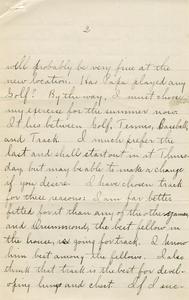 2
will probably be very fine at the
new location. Has Papa played any
Golf? By the way, I must choose
my exercise for the summer now.
It lies between Golf, Tennis, Baseball,
and Track. I much prefer the
last and shall start out in it Thurs-
day, but may be able to make a change
if you desire. I have chosen track
for three reasons: I am far better
fitted for it than any of the other games,
and Drummond, the best fellow in
the house, is going for track. I know
him best among the fellows. I also
think that track is the best for devel-
oping lungs and chest. If I suc-